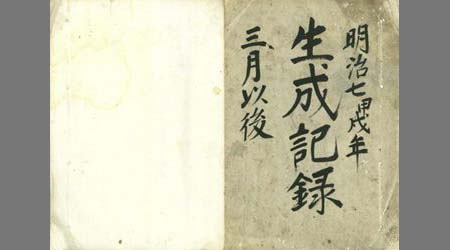 明治七甲戌年
生成記録
三月以後